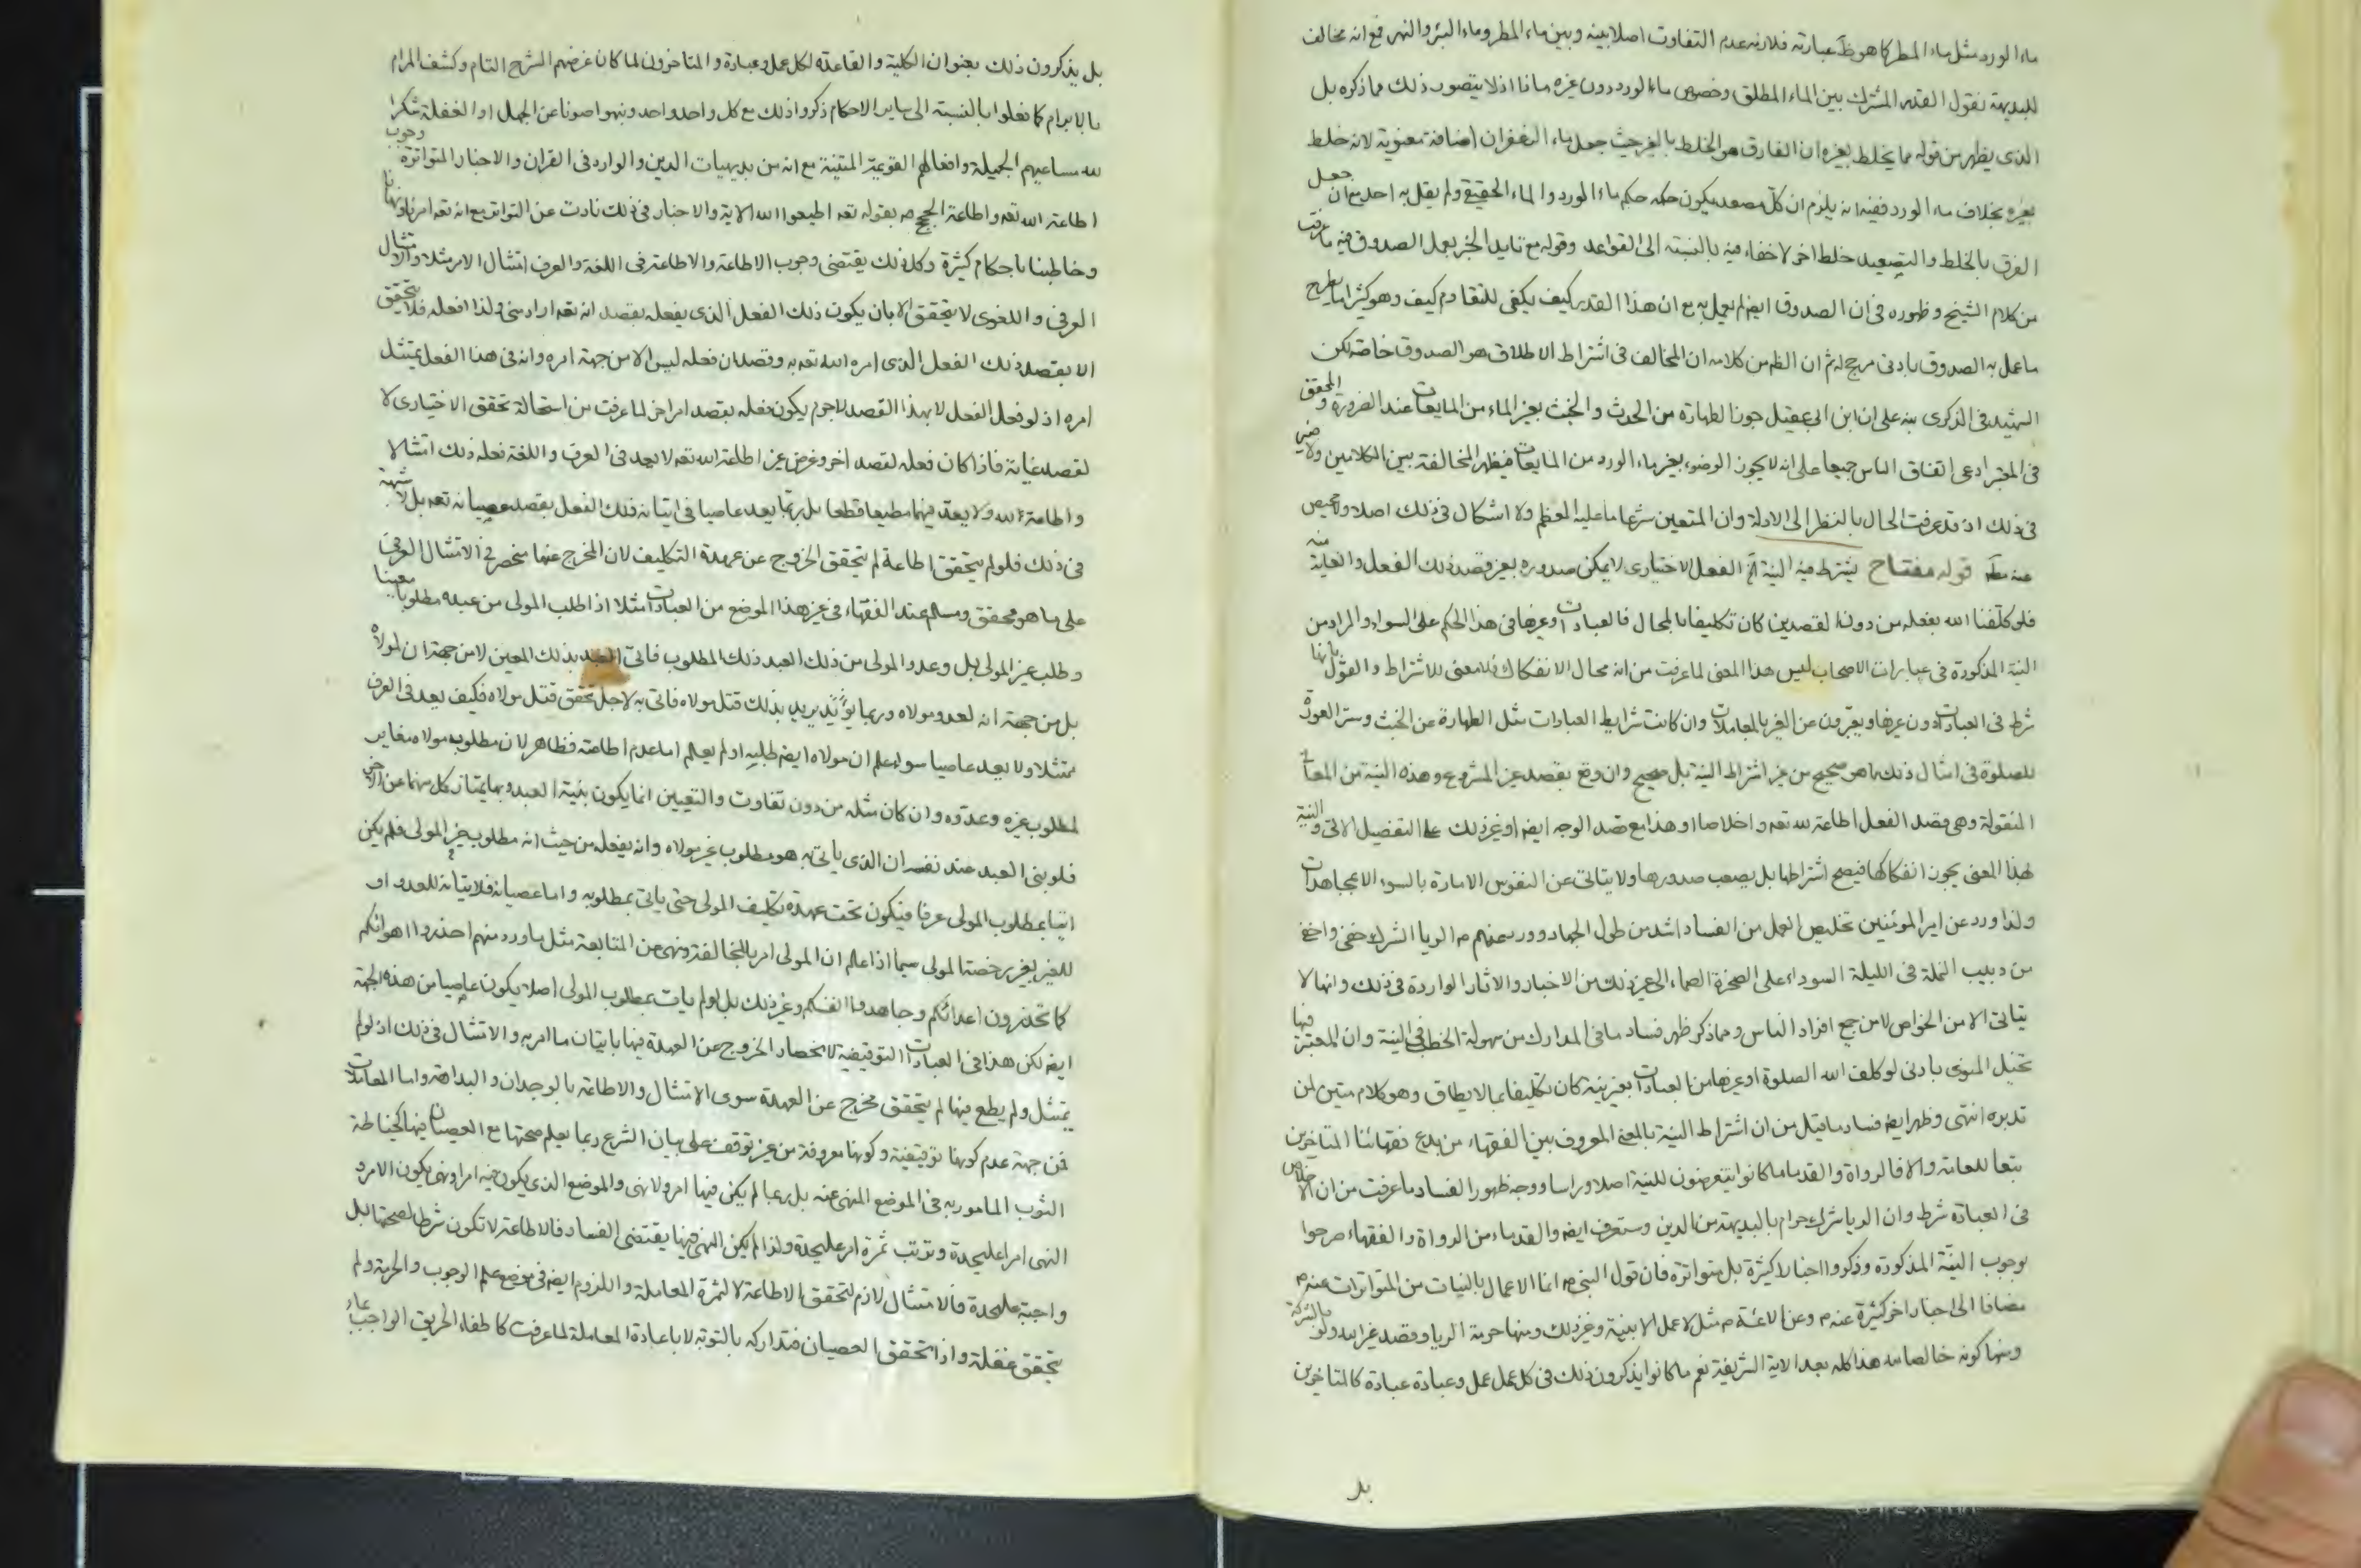 ماء الورد مثل ماء المطر كما هو ظ عبارته فلانه عدم التفاوت اصلا بينه وبين ماء المطر وماء البئر والنهر فمع انه مخالف
للبديهة نقول القدر المشترك بين الماء المطلق وخصوص ماء الورد دون غيره ماذا اذ لا يتصور ذلك مما ذكره بل
الذى يظهر من قوله مما يخلط بغيره ان الفارق هو الخلط بالغير حيث جعل ماء الزعفران اضافة معنوية لانه خلط
بغيره بخلاف ماء الورد ففيه انه يلزم ان كل مصعد يكون حكمه حكم ماء الورد والماء الحقيقى ولم يقل به احد مع ان جعل
الفرق بالخلط والتصعيد خلط اخر لا خفاء فيه بالنسبة الى القواعد وقوله مع تايد الخبر بعمل الصدوق فيه ما عرفت
من كلام الشيخ وظهوره فى ان الصدوق ايضا لم يعمل به مع ان هذا القدر كيف يكفى للتقاوم كيف وهو كثيرا ما يطرح
ما عمل به الصدوق بادنى مرجح له ثم ان الظ من كلامه ان المخالف فى اشتراط الاطلاق هو الصدوق خاصة لكن
الشهيد فى الذكرى نبه على ان ابن ابى عقيل جوز الطهارة من الحدث والخبث بغير الماء من المايعات عند الضرورة والمحقق
فى المعتبر ادعى اتفاق الناس جميعا على انه لا يجوز الوضوء بغير ماء الورد من المايعات فيظهر المخالفة بين الكلامين ولا ضير
فى ذلك اذ قد عرفت الحال بالنظر الى الادلة وان المتعين شرعا ما عليه المعظم ولا اشكال فى ذلك اصلا ولا محيص
عنه مطلقا قوله مفتاح يشترط فيه النية الخ الفعل الاختيارى لا يمكن صدوره بغير قصد ذلك الفعل والغاية منه
فلو كلفنا الله بفعله من دون القصدين كان تكليفا بالمحال فالعبادات وغيرها فى هذا الحكم على السواء والمراد من
النية المذكورة فى عبارات الاصحاب ليس هذا المعنى لما عرفت من انه محال الانفكاك فلا معنى للاشتراط والقول بانها
شرط فى العبادات دون غيرها ويعبرون عن الغير بالمعاملات وان كانت شرايط العبادات مثل الطهارة عن الخبث وستر العورة
للصلوة فى امثال ذلك مما هو صحيح من غير اشتراط النية بل صحيح وان وقع بقصد غير المشروع وهذه النية من المعانى
المنقولة وهى قصد الفعل اطاعة لله تعه واخلاصا او هذا مع قصد الوجه ايضا او غير ذلك على التفصيل الاتى والنية
بهذا المعنى يجوز انفكاكها فيصح اشتراطها بل يصعب صدورها ولا يتاتى عن النفوس الامارة بالسوء الا بمجاهدات
ولذا ورد عن امير المؤمنين تخليص العمل من الفساد اشد من طول الجهاد وورد عنهم م الريا الشرك خفى واخفى
من دبيب النملة فى الليلة السوداء على الصخرة الصماء الى غير ذلك من الاخبار والاثار الواردة فى ذلك وانها لا
يتاتى الا من الخواص لا من جميع افراد الناس ومما ذكر ظهر فساد ما فى المدارك من سهولة الخطب فى النية وان المعتبر فيها
تخيل المنوى بادنى لو كلف الله الصلوة او غيرها من العبادات بغير نية كان تكليفا بما لا يطاق وهو كلام متين لمن
تدبره انتهى وظهر ايضا فساد ما قيل من ان اشتراط النية بالمعنى المعروف بين الفقهاء من بدع فقهائنا المتاخرين
تبعا للعامة والا فالرواة والقدما ما كانوا يتعرضون للنية اصلا وراسا ووجه ظهور الفساد ما عرفت من ان الاخلاص
فى العبادة شرط وان الريا شرك حرام بالبديهة من الدين وستعرف ايضا والقدماء من الرواة والفقهاء صرحوا
بوجوب النية المذكورة وذكروا اخبارا كثيرة بل متواترة فان قول النبى ص انما الاعمال بالنيات من المتواترات عنه ص
مضافا الى اخبار اخر كثيرة عنه م وعن الائمة م مثل لا عمل الا بنية وغير ذلك ومنها حرمة الريا وقصد غير الله ولو بالشركة
ومنها كونه خالصا لله هذا كله بعد الاية الشريفة نعم ما كانوا يذكرون ذلك فى كل عمل عمل وعبادة عبادة كالمتاخرين
بل
بل يذكرون ذلك بعنوان الكلية والقاعدة لكل عمل وعبادة والمتاخرون لما كان غرضهم الشرح التام وكشف المرام
بالابرام كما فعلوا بالنسبة الى ساير الاحكام ذكروا ذلك مع كل واحد واحد ونبهوا صونا عن الجهل او الغفلة شكرا
لله مساعيهم الجميلة وافعالهم القويمة المتينة مع انه من بديهيات الدين والوارد فى القران والاخبار المتواترة وجوب
اطاعة الله تعه واطاعة الحجج م بقوله تعه اطيعوا الله الاية والاخبار فى ذلك زادت عن التواتر مع انه تعه امرنا ونهانا
وخاطبنا باحكام كثيرة وكل ذلك يقتضى وجوب الاطاعة والاطاعة فى اللغة والعرف امتثال الامر مثلا والامتثال
العرفى واللغوى لا يتحقق الا بان يكون ذلك الفعل الذى يفعله بقصد انه تعه اراد منى ولذا افعله فلا يتحقق
الا بقصد ذلك الفعل الذى امره الله تعه به وقصد ان فعله ليس الا من جهة امره وانه فى هذا الفعل يمتثل
امره اذ لو فعل الفعل لا بهذا القصد لا جرم يكون فعله بقصد امر اخر لما عرفت من استحالة تحقق الاختيارى لا
لقصد غاية فاذا كان فعله لقصد اخر وغرض غير اطاعة الله تعه لا يعد فى العرف واللغة فعله ذلك امتثالا
واطاعة لله ولا يعد فيهما مطيعا قطعا بل ربما يعد عاصيا فى اتيانه ذلك الفعل بقصد عصيانه تعه بل لا شبهة
فى ذلك فلو لم يتحقق اطاعة لم يتحقق الخروج عن عهدة التكليف لان المخرج عنها منحصر فى الامتثال العرفى
على ما هو محقق ومسلم عند الفقهاء فى غير هذا الموضع من العبادات مثلا اذا طلب المولى من عبده مطلوبا معينا
وطلب غير المولى بل وعدو المولى من ذلك العبد ذلك المطلوب فاتى العبد بذلك المعين لا من جهة ان لمولاه
بل من جهة انه لعدو مولاه وربما يريد بذلك قتل مولاه فاتى به لاجل تحقق قتل مولاه فكيف يعد فى العرف
ممتثلا ولا يعد عاصيا سواء علم ان مولاه ايضا طلبه او لم يعلم اما عدم اطاعته فظاهر لان مطلوب مولاه مغاير
لمطلوب غيره وعدوه وان كان مثله من دون تفاوت والتعيين انما يكون بنية العبد وبها يمتاز كل منهما عن الاخر
فلو بنى العبد عند نفسه ان الذى ياتى به هو مطلوب غير مولاه وانه يفعله من حيث انه مطلوب غير المولى فلم يكن
اتيا بمطلوب المولى عرفا فيكون تحت عهدة تكليف المولى حتى ياتى بمطلوبه واما عصيانه فلاتيانه للعدو او
للغير بغير رخصة المولى سيما اذا علم ان المولى امر بالمخالفة ونهى عن المتابعة مثل ما ورد منهم احذروا اهوائكم
كما تحذرون اعدائكم وجاهدوا انفسكم وغير ذلك بل لو لم يات بمطلوب المولى اصلا يكون عاصيا من هذه الجهة
ايضا لكن هذا فى العبادات التوقيفية لانحصار الخروج عن العهدة فيها باتيان ما امر به والامتثال فى ذلك اذ لو لم
يمتثل ولم يطع فيها لم يتحقق مخرج عن العهدة سوى الامتثال والاطاعة بالوجدان والبداهة واما المعاملات
فمن جهة عدم كونها توقيفية وكونها معروفة من غير توقف على بيان الشرع ربما يعلم صحتها مع العصيان فيها كخياطة
الثوب المامور به فى الموضع المنهى عنه بل ربما لم يكن فيها امر ولا نهى والموضع الذى يكون فيه امر او نهى يكون الامر و
النهى امرا عليحدة وترتب ثمرة امر عليحدة ولذا لم يكن النهى فيها يقتضى الفساد فالاطاعة لا تكون شرطا لصحتها بل
واجبة عليحدة فالامتثال لازم لتحقق الاطاعة لا لثمرة المعاملة واللزوم ايضا فى موضع علم الوجوب والحرمة ولم
يتحقق غفلة واذا تحقق العصيان فتداركه بالتوبة لا باعادة المعاملة لما عرفت كاطفاء الحريق الواجب